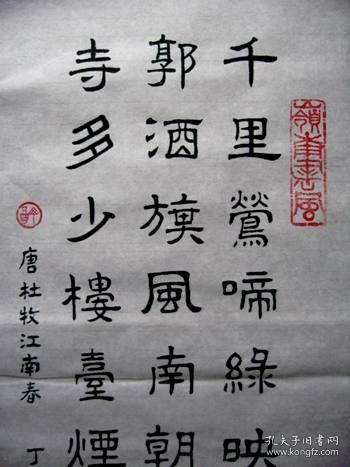 千里鶯啼綠映
郭酒旗風南朝
寺多少樓臺煙
唐杜牧江南春 丁
孔夫子旧书网
www.kongfz.com